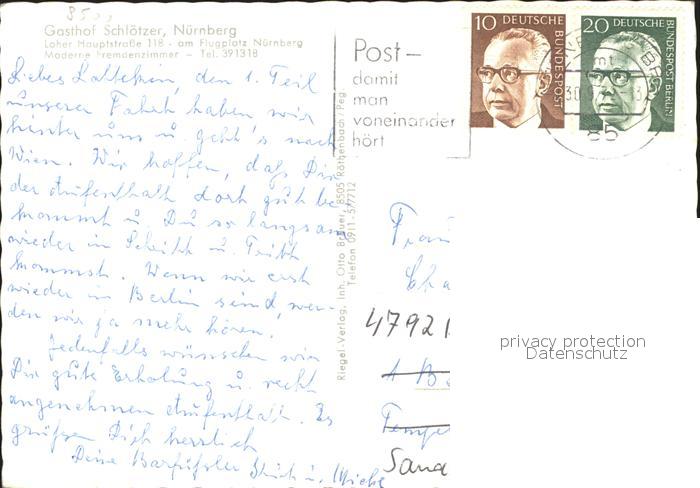 850
Gasthof Schlötzer, Nürnberg
Loher Hauptstraße 118 - am Flugplatz Nürnberg
Moderne Fremdenzimmer - Tel. 391318
Liebes Lottchen, den 1. Teil
unserer Fahrt haben wir
hinter uns u. geht's nach
Wien. Wir hoffen, daß Dir
der Aufenthalt dort gut be-
kommt u. Du so langsam
wieder in Schritt u. Tritt
kommst. Wenn wir erst
wieder in Berlin sind, wer-
den wir ja mehr hören.
Jedenfalls wünschen wir
Dir gute Erholung u. recht
angenehmen Aufenthalt. Es
grüßen Dich herzlich
Deine u.
Riegel-Verlag, Inh. Otto Brauer, 8505 Röthenbach/Peg.
Telefon 0911-577712
Post-
damit
man
voneinander
hört
10 DEUTSCHE BUNDESPOST
20 DEUTSCHE BUNDESPOST BERLIN
85
Frau
Cha
47921
Tempe
Sana
privacy protection
Datenschutz